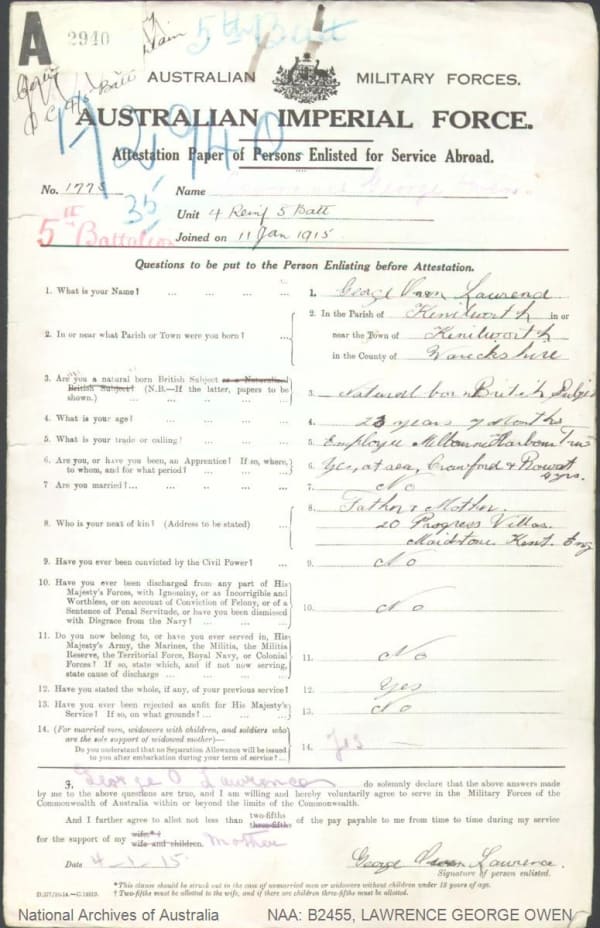 A
2940
5th Batt
AUSTRALIAN MILITARY FORCES.
AUSTRALIAN IMPERIAL FORCE.
Attestation Paper of Persons Enlisted for Service Abroad.
No. 1775 Name George
35
Unit 4 Reinf 5 Batt
5th Battalion
Joined on 11 Jan 1915
Questions to be put to the Person Enlisting before Attestation.
1. What is your Name? ... ... ... ... 1. George Owen Lawrence
2. In or near what Parish or Town were you born? ... 2. In the Parish of Kenilworth in or
near the Town of Kenilworth
in the County of Warickshire
3. Are you a natural born British Subject or a Naturalised
British Subject? (N.B.—If the latter, papers to be
shown.) ... ... ... ... 3. Natural born British Subject
4. What is your age? ... ... ... ... 4. 23 years 7 Months
5. What is your trade or calling? ... ... ... 5. Employee Melbourne Harbour Trus
6. Are you, or have you been, an Apprentice? If so, where,
to whom, and for what period? ... ... ... 6. Yes, at sea, Crawford & Rowat
4yrs.
7. Are you married? ... ... ... ... 7. No
8. Who is your next of kin? (Address to be stated) ... 8. Father & Mother.
20 Progress Villas.
Maidstone. Kent. Eng
9. Have you ever been convicted by the Civil Power? ... 9. No
10. Have you ever been discharged from any part of His
Majesty's Forces, with Ignominy, or as Incorrigible and
Worthless, or on account of Conviction of Felony, or of a
Sentence of Penal Servitude, or have you been dismissed
with Disgrace from the Navy? ... ... ... 10. No
11. Do you now belong to, or have you ever served in, His
Majesty's Army, the Marines, the Militia, the Militia
Reserve, the Territorial Force, Royal Navy, or Colonial
Forces? If so, state which, and if not now serving,
state cause of discharge ... ... ... 11. No
12. Have you stated the whole, if any, of your previous service? 12. Yes
13. Have you ever been rejected as unfit for His Majesty's
Service? If so, on what grounds? ... ... ... 13. No
14. (For married men, widowers with children, and soldiers who
are the sole support of widowed mother)—
Do you understand that no Separation Allowance will be issued
to you after embarkation during your term of service? ... 14. Yes
I, George O Lawrence do solemnly declare that the above answers made
by me to the above questions are true, and I am willing and hereby voluntarily agree to serve in the Military Forces of the
Commonwealth of Australia within or beyond the limits of the Commonwealth.
And I further agree to allot not less than two-fifths
three-fifths of the pay payable to me from time to time during my service
for the support of my wife.*†
wife and children. Mother
Date 4-1-15 George Owen Lawrence.
Signature of person enlisted.
*This clause should be struck out in the case of unmarried men or widowers without children under 18 years of age.
† Two-fifths must be allotted to the wife, and if there are children three-fifths must be allotted.
National Archives of Australia NAA: B2455, LAWRENCE GEORGE OWEN